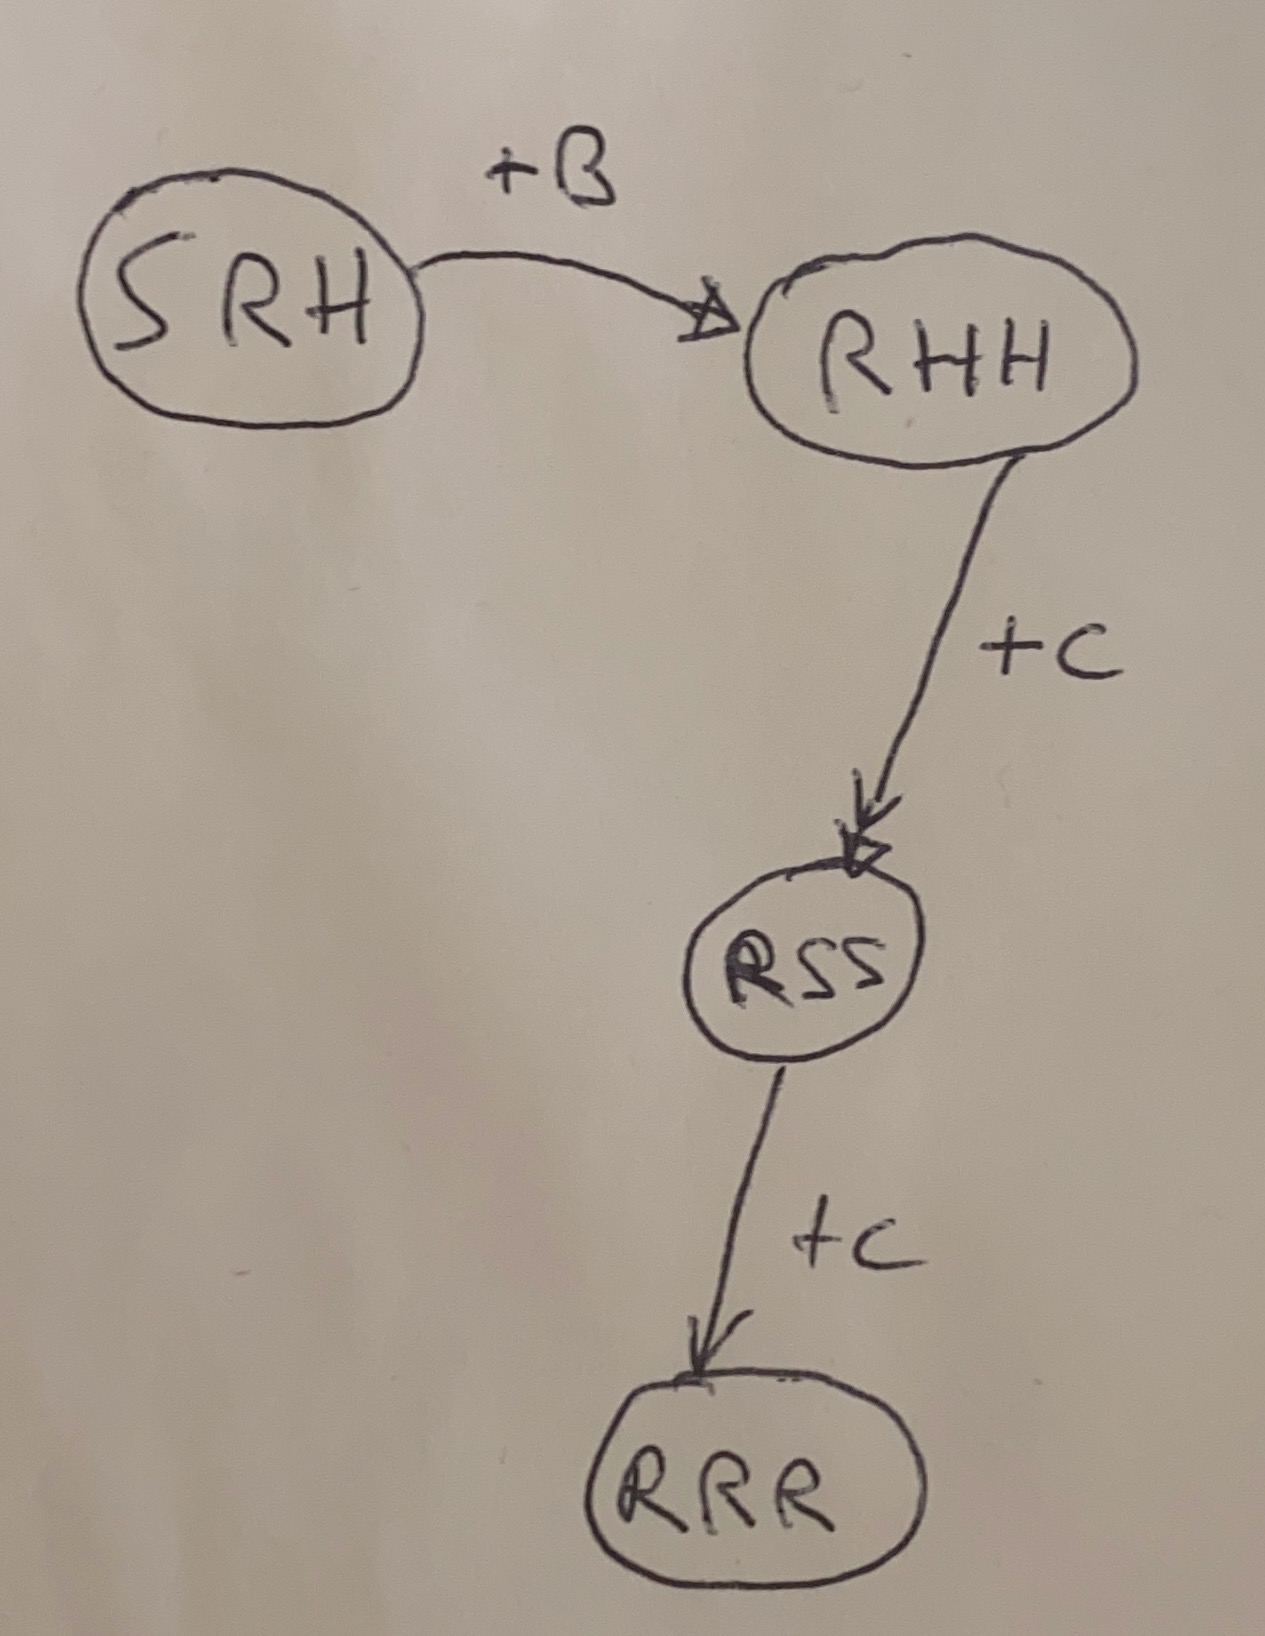 +B
SRH
RHH
+C
RSS
+C
RRR